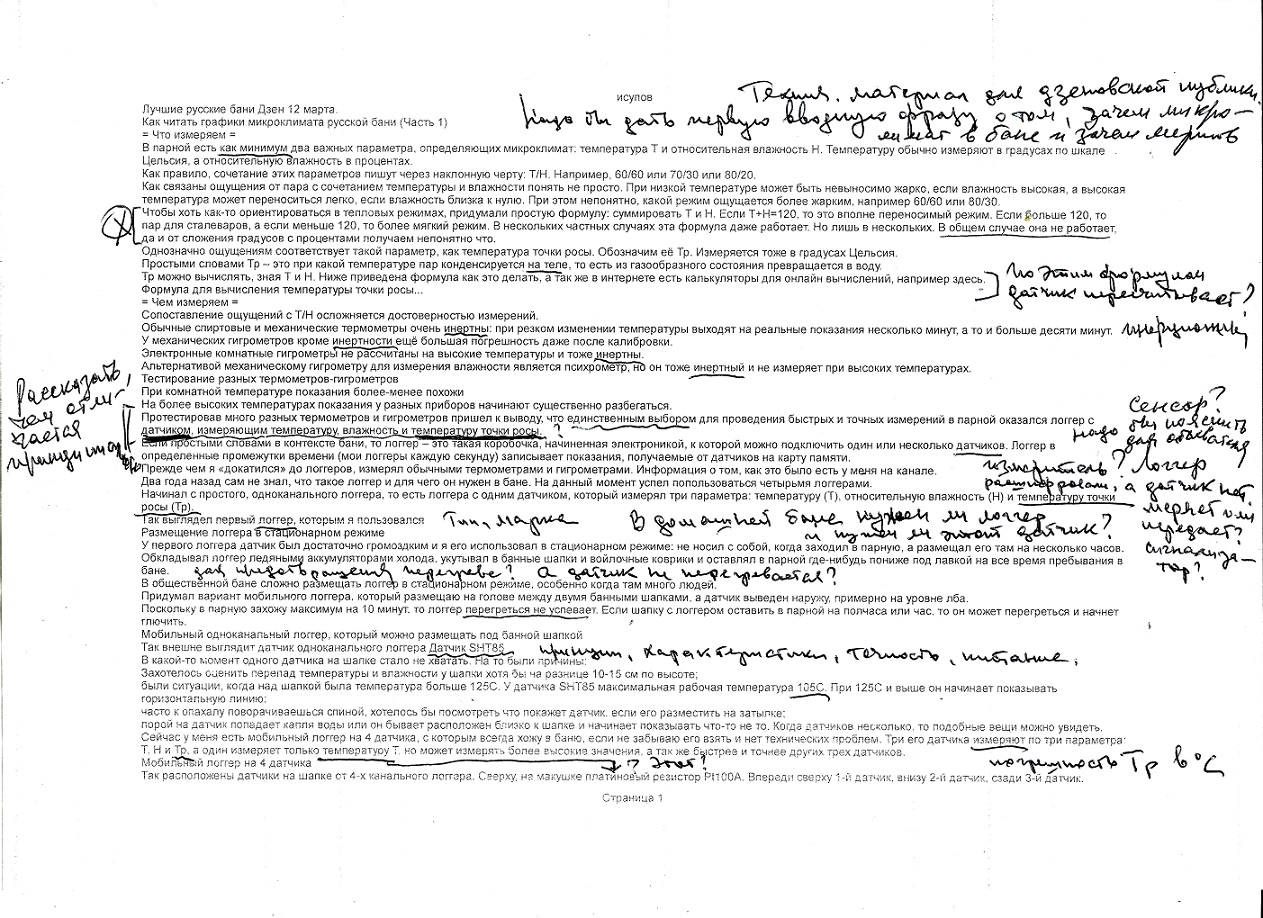 исупов
Технич. материал для дзеновской публики.
Лучшие русские бани Дзен 12 марта.
Надо бы дать первую вводную фразу о том, зачем микро-
Как читать графики микроклимата русской бани (Часть 1)
климат в бане и зачем мерить
= Что измеряем =
В парной есть как минимум два важных параметра, определяющих микроклимат: температура Т и относительная влажность Н. Температуру обычно измеряют в градусах по шкале
Цельсия, а относительную влажность в процентах.
Как правило, сочетание этих параметров пишут через наклонную черту: Т/Н. Например, 60/60 или 70/30 или 80/20.
Как связаны ощущения от пара с сочетанием температуры и влажности понять не просто. При низкой температуре может быть невыносимо жарко, если влажность высокая, а высокая
температура может переноситься легко, если влажность близка к нулю. При этом непонятно, какой режим ощущается более жарким, например 60/60 или 80/30.
Чтобы хоть как-то ориентироваться в тепловых режимах, придумали простую формулу: суммировать Т и Н. Если Т+Н=120, то это вполне переносимый режим. Если больше 120, то
пар для сталеваров, а если меньше 120, то более мягкий режим. В нескольких частных случаях эта формула даже работает. Но лишь в нескольких. В общем случае она не работает,
да и от сложения градусов с процентами получаем непонятно что.
Однозначно ощущениям соответствует такой параметр, как температура точки росы. Обозначим её Тр. Измеряется тоже в градусах Цельсия.
Простыми словами Тр – это при какой температуре пар конденсируется на теле, то есть из газообразного состояния превращается в воду.
Тр можно вычислять, зная Т и Н. Ниже приведена формула как это делать, а так же в интернете есть калькуляторы для онлайн вычислений, например здесь.
По этим формулам
датчик пересчитывает?
Формула для вычисления температуры точки росы...
= Чем измеряем =
Сопоставление ощущений с Т/Н осложняется достоверностью измерений.
Обычные спиртовые и механические термометры очень инертны: при резком изменении температуры выходят на реальные показания несколько минут, а то и больше десяти минут.
У механических гигрометров кроме инертности ещё большая погрешность даже после калибровки.
Электронные комнатные гигрометры не рассчитаны на высокие температуры и тоже инертны.
Альтернативой механическому гигрометру для измерения влажности является психрометр, но он тоже инертный и не измеряет при высоких температурах.
Тестирование разных термометров-гигрометров
При комнатной температуре показания более-менее похожи
Рассказать,
чем отли-
чается
На более высоких температурах показания у разных приборов начинают существенно разбегаться.
Протестировав много разных термометров и гигрометров пришел к выводу, что единственным выбором для проведения быстрых и точных измерений в парной оказался логгер с
датчиком, измеряющим температуру, влажность и температуру точки росы. ?
Сенсор?
надо бы пояснить
для обывателя
Если простыми словами в контексте бани, то логгер – это такая коробочка, начиненная электроникой, к которой можно подключить один или несколько датчиков. Логгер в
определенные промежутки времени (мои логгеры каждую секунду) записывает показания, получаемые от датчиков на карту памяти.
Прежде чем я «докатился» до логгеров, измерял обычными термометрами и гигрометрами. Информация о том, как это было есть у меня на канале.
измеритель? Логгер
Два года назад сам не знал, что такое логгер и для чего он нужен в бане. На данный момент успел попользоваться четырьмя логгерами.
а датчик нет.
Начинал с простого, одноканального логгера, то есть логгера с одним датчиком, который измерял три параметра: температуру (Т), относительную влажность (Н) и температуру точки
росы (Тр).
меряет или
передает?
сигнализа-
тор?
Так выглядел первый логгер, которым я пользовался
Тип, марка
В домашней бане нужен ли логгер
и нужен ли этот датчик?
Размещение логгера в стационарном режиме
У первого логгера датчик был достаточно громоздким и я его использовал в стационарном режиме: не носил с собой, когда заходил в парную, а размещал его там на несколько часов.
Обкладывал логгер ледяными аккумуляторами холода, укутывал в банные шапки и войлочные коврики и оставлял в парной где-нибудь пониже под лавкой на все время пребывания в
бане.
для предотвращения перегрева? А датчик не перегревается?
В общественной бане сложно размещать логгер в стационарном режиме, особенно когда там много людей.
Придумал вариант мобильного логгера, который размещаю на голове между двумя банными шапками, а датчик выведен наружу, примерно на уровне лба.
Поскольку в парную захожу максимум на 10 минут, то логгер перегреться не успевает. Если шапку с логгером оставить в парной на полчаса или час, то он может перегреться и начнет
глючить.
Мобильный одноканальный логгер, который можно размещать под банной шапкой
Так внешне выглядит датчик одноканального логгера Датчик SHT85
принцип, характеристики, точность, питание,
В какой-то момент одного датчика на шапке стало не хватать. На то были причины:
Захотелось оценить перепад температуры и влажности у шапки хотя бы на разнице 10-15 см по высоте;
были ситуации, когда над шапкой была температура больше 125С. У датчика SHT85 максимальная рабочая температура 105С. При 125С и выше он начинает показывать
горизонтальную линию;
часто к опахалу поворачиваешься спиной, хотелось бы посмотреть что покажет датчик, если его разместить на затылке;
порой на датчик попадает капля воды или он бывает расположен близко к шапке и начинает показывать что-то не то. Когда датчиков несколько, то подобные вещи можно увидеть.
Сейчас у меня есть мобильный логгер на 4 датчика, с которым всегда хожу в баню, если не забываю его взять и нет технических проблем. Три его датчика измеряют по три параметра:
Т, Н и Тр, а один измеряет только температуру Т, но может измерять более высокие значения, а так же быстрее и точнее других трех датчиков.
Мобильный логгер на 4 датчика
? Этот?
погрешность Тр в °С
Так расположены датчики на шапке от 4-х канального логгера. Сверху, на макушке платиновый резистор Pt100A. Впереди сверху 1-й датчик, внизу 2-й датчик, сзади 3-й датчик.
Страница 1